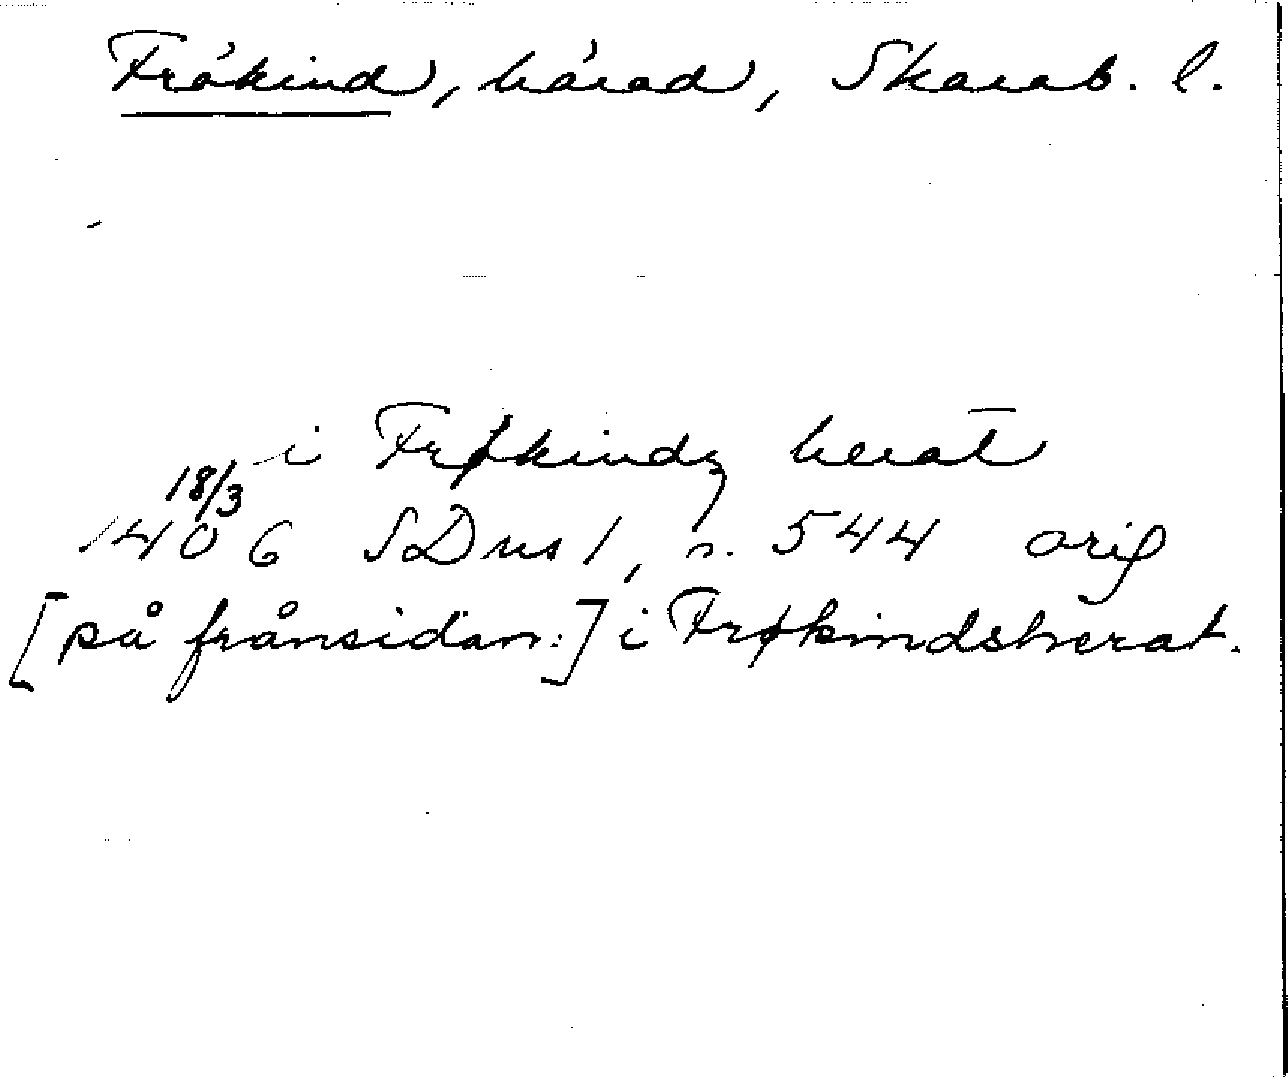 Frökind, härad, Skarab. l.
i Frøkindz herat̄
18/3
1406 SDns 1, s. 544 orig
[på frånsidan:] i Frøkindsherat.